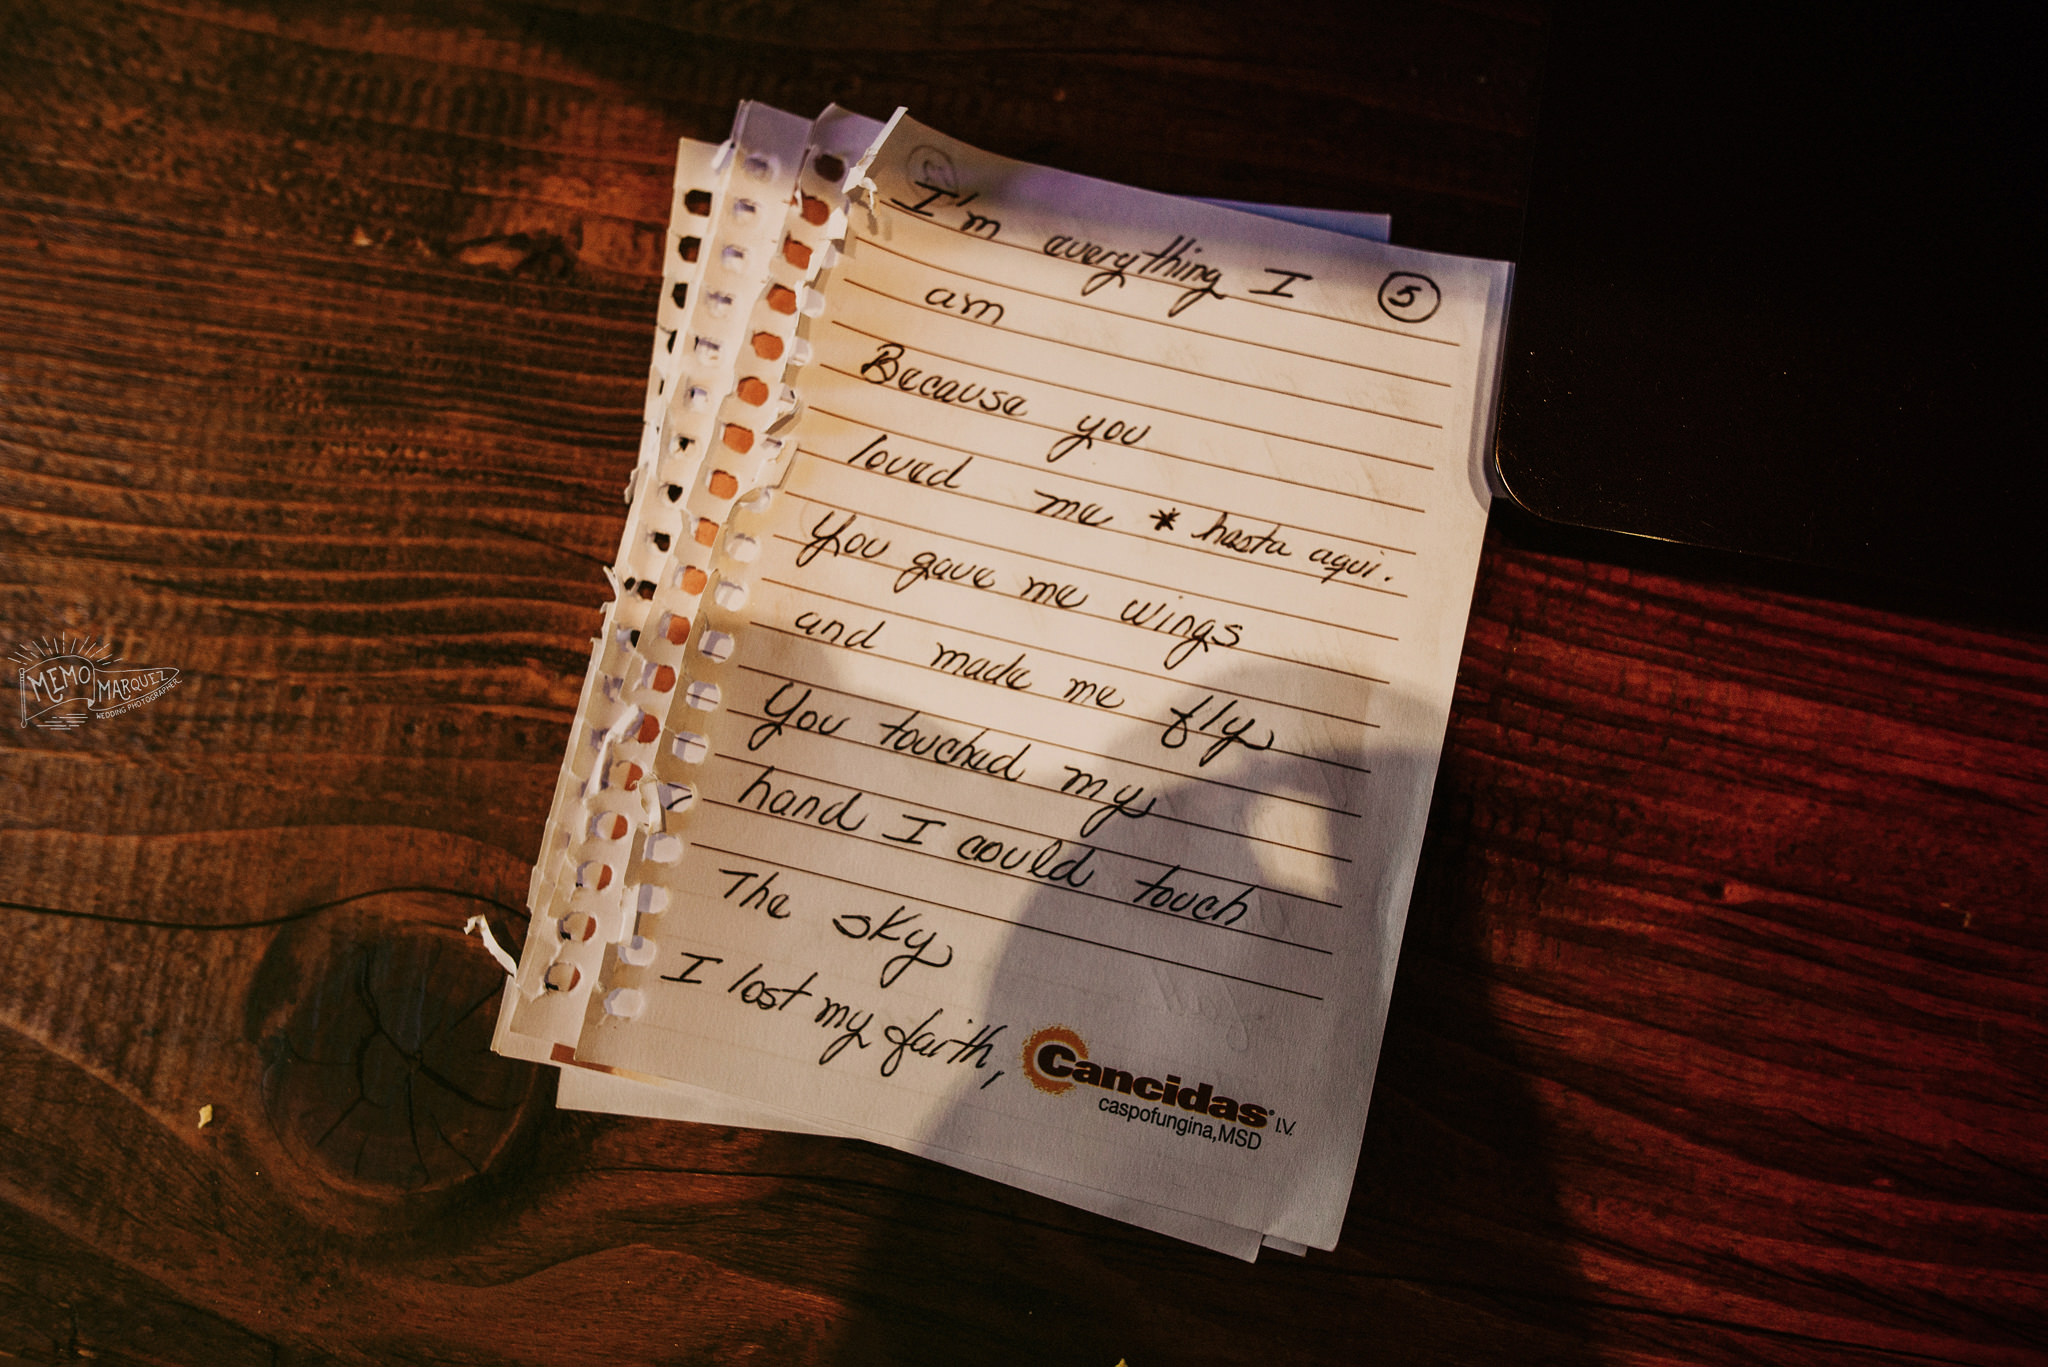 I'm everything I
5
am
Because you
loved me * hasta aqui.
You gave me wings
and made me fly
You touched my
hand I could touch
The sky
I lost my faith,
Cancidas I.V.
caspofungina, MSD
MEMO MARQUEZ
WEDDING PHOTOGRAPHER